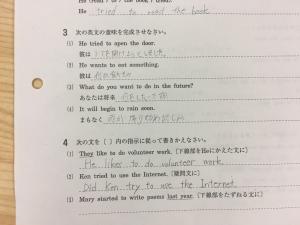 He (read / to / the book / tried).
He tried to read the book
3 次の英文の意味を完成させなさい。
(1) He tried to open the door.
彼は ドアを開けようとしました。
(2) He wants to eat something.
彼は
(3) What do you want to do in the future?
あなたは将来 何をしたいですか
(4) It will begin to rain soon.
まもなく 雨が降り始めるでしょう
4 次の文を( )内の指示に従って書きかえなさい。
(1) They like to do volunteer work. (下線部をHeにかえた文に)
He likes to do volunteer work.
(2) Ken tried to use the Internet. (疑問文に)
Did Ken try to use the Internet
(3) Mary started to write poems last year. (下線部をたずねる文に)